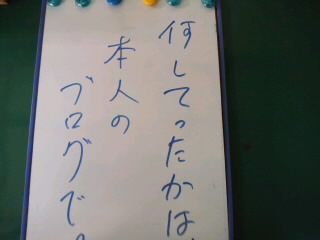 何してったかは
本人の
ブログで